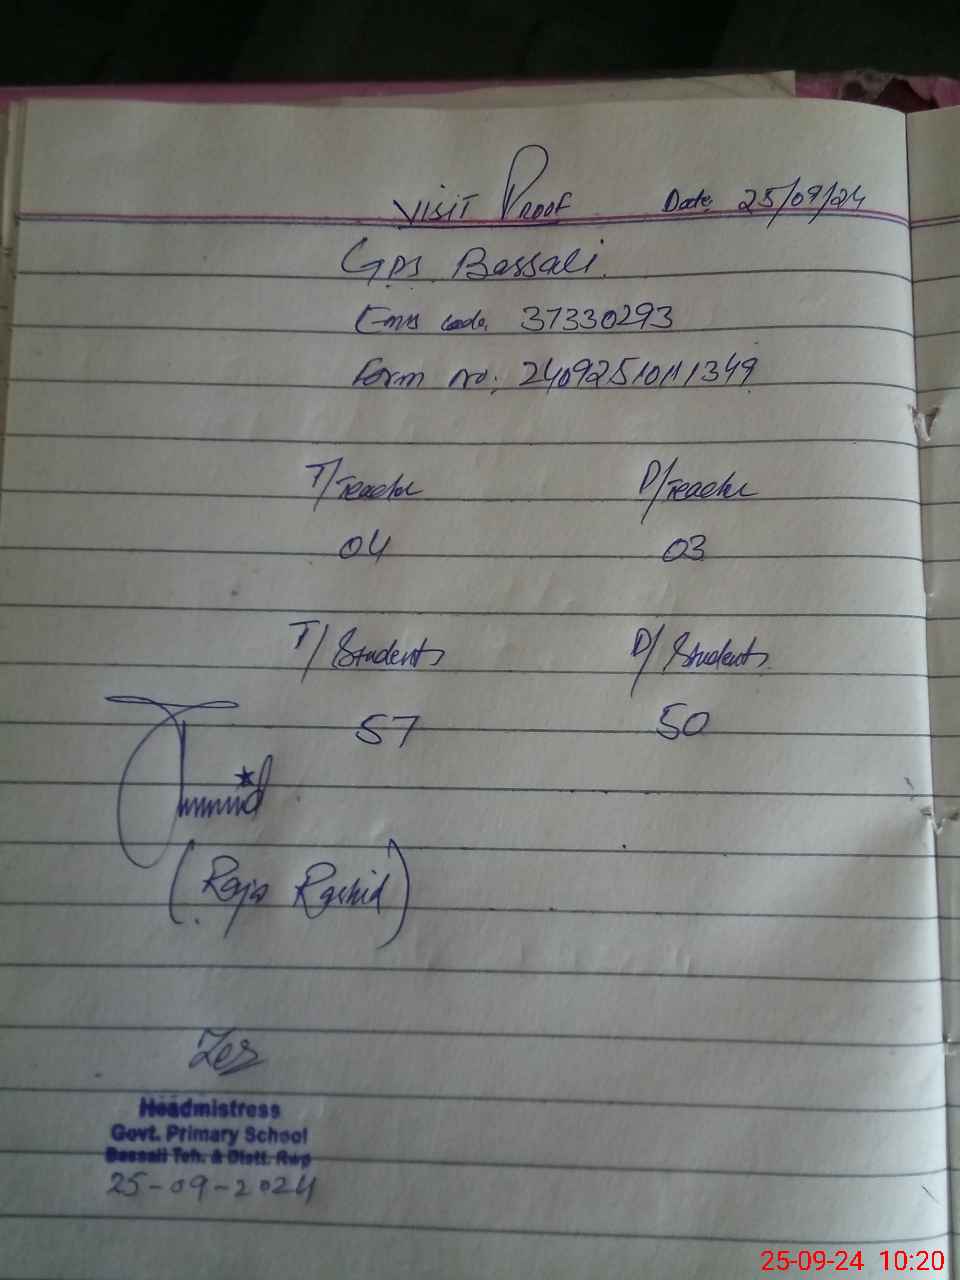 VISIT PROOF Date: 25/09/24
GPS Bassali.
Emis code. 37330293
Form no: 2409251011349
T/Teacher P/Teacher
04 03
T/Students P/Students
57 50
(Raja Rashid)
Headmistress
Govt. Primary School
Bassali Teh. & Distt. Rwp
25-09-2024
25-09-24 10:20